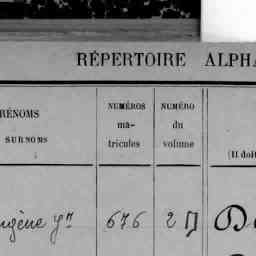 RÉPERTOIRE ALPHA
RÉNOMS
SURNOMS
NUMÉROS
ma-
tricules
NUMÉRO
du
volume
(Il doit
ugène 676 2